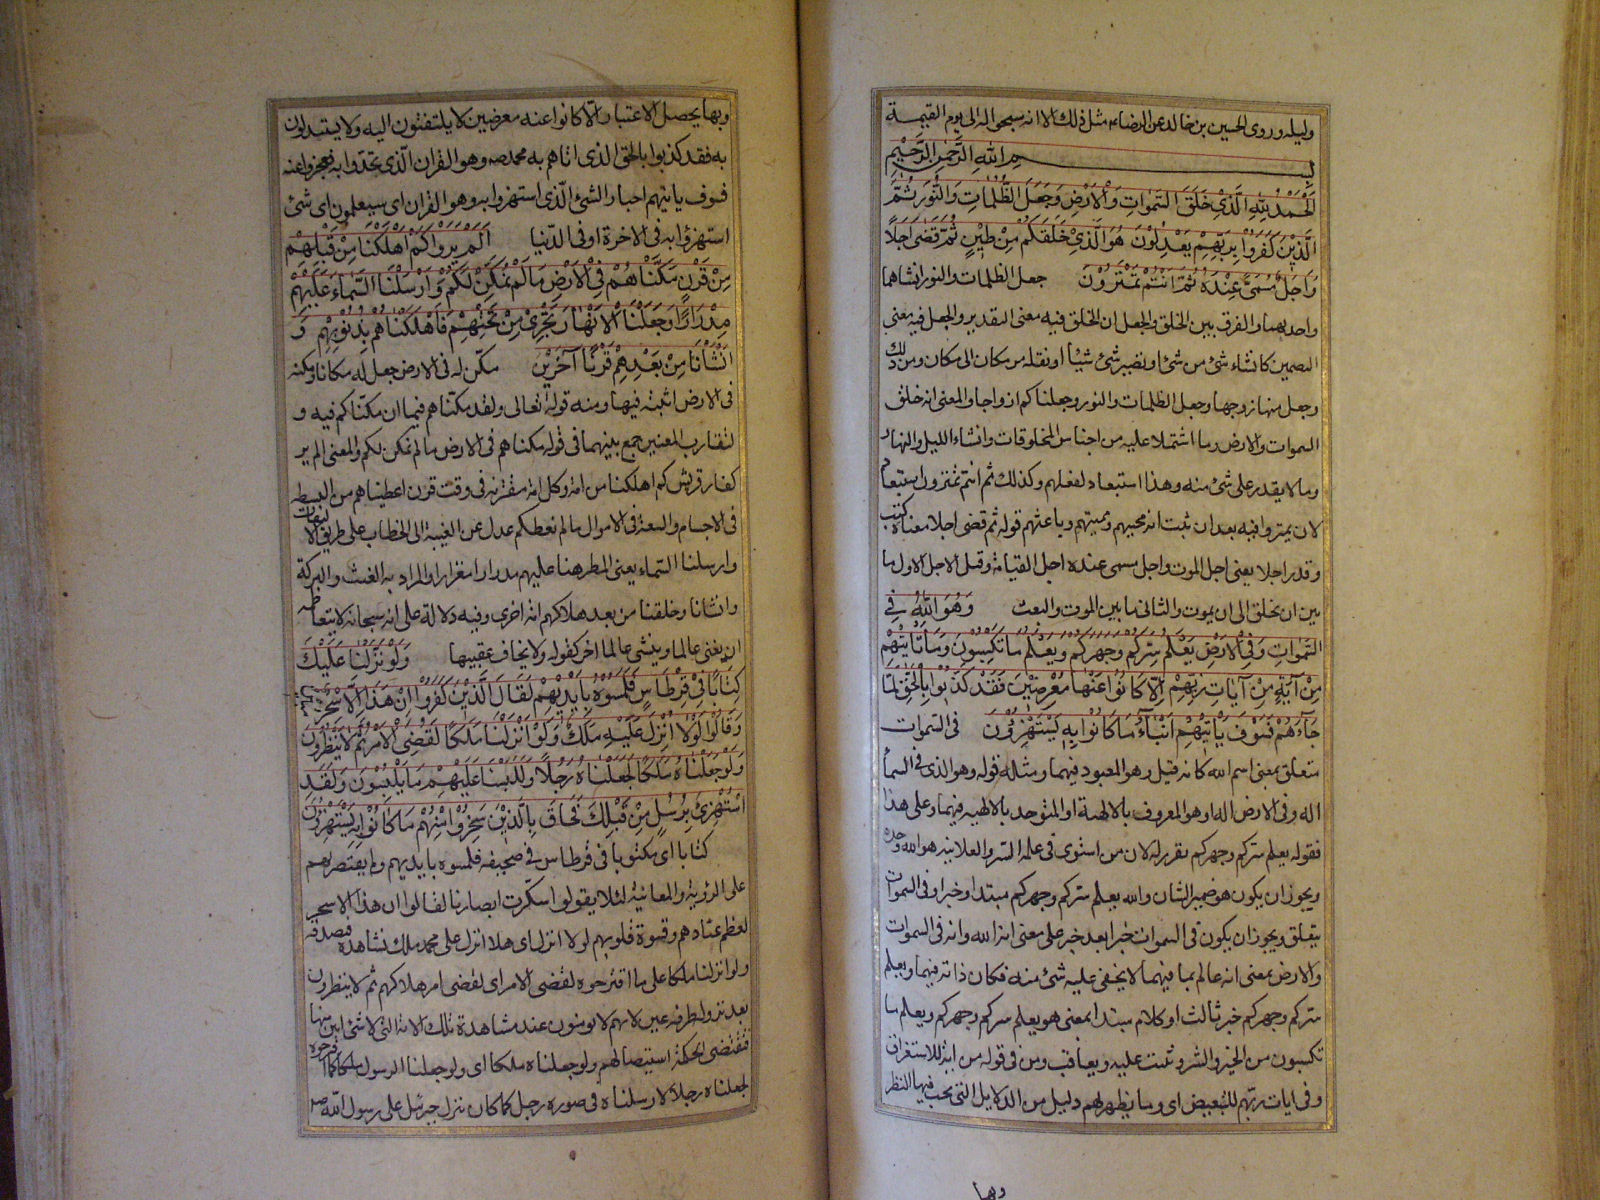 وليله وروى الحسين بن خالد عن الرضاء مثل ذلك الا انه سبحوا له الى يوم القيمة
بِسْمِ اللهِ الرَّحْمٰنِ الرَّحِيْمِ
اَلْحَمْدُ لِلّٰهِ الَّذِيْ خَلَقَ السَّمٰوَاتِ وَالْاَرْضَ وَجَعَلَ الظُّلُمَاتِ وَالنُّوْرَ ثُمَّ
الَّذِيْنَ كَفَرُوْا بِرَبِّهِمْ يَعْدِلُوْنَ هُوَ الَّذِيْ خَلَقَكُمْ مِنْ طِيْنٍ ثُمَّ قَضٰى اَجَلًا
وَاَجَلٌ مُسَمًّى عِنْدَهُ ثُمَّ اَنْتُمْ تَمْتَرُوْنَ جعل الظلمات والنور انشاهما
واحدثهما والفرق بين الخلق والجعل ان الخلق فيه معنى التقدير والجعل فيه معنى
التصيير كانشاء شئ من شئ او تصيير شئ شيئا او نقله من مكان الى مكان ومن ذلك
وجعل منها زوجها وجعل الظلمات والنور وجعلناكم ازواجا والمعنى انه خلق
السموات والارض وما اشتملا عليه من اجناس المخلوقات وانشاء الليل والنهار
وما لا يقدر على شئ منه وهذا استبعاد لفعلهم وكذلك ثم انتم تمترون استبعاد
لان يمتروا فيه بعد ان ثبت انه محييهم ومميتهم وباعثهم قوله ثم قضى اجلا معناه كتب
وقدر اجلا يعنى اجل الموت واجل مسمى عنده اجل القيامة وقيل الاجل الاول ما
بين ان يخلق الى ان يموت والثانى ما بين الموت والبعث وَهُوَ اللّٰهُ فِي
السَّمٰوَاتِ وَفِي الْاَرْضِ يَعْلَمُ سِرَّكُمْ وَجَهْرَكُمْ وَيَعْلَمُ مَا تَكْسِبُوْنَ وَمَا تَأْتِيْهِمْ
مِنْ آيَةٍ مِنْ آيَاتِ رَبِّهِمْ اِلَّا كَانُوْا عَنْهَا مُعْرِضِيْنَ فَقَدْ كَذَّبُوْا بِالْحَقِّ لَمَّا
جَآءَهُمْ فَسَوْفَ يَأْتِيْهِمْ اَنْبَآءُ مَا كَانُوْا بِهِ يَسْتَهْزِؤُنَ فى السموات
متعلق بمعنى اسم الله كانه قيل وهو المعبود فيهما ومثله قوله وهو الذى فى السماء
اله وفى الارض اله او هو المعروف بالالهية او المتوحد بالالهية فيهما وعلى هذا
فقوله يعلم سركم وجهركم تقرير له لان من استوى فى علمه السر والعلانية هو الله وحده
ويجوز ان يكون هو ضمير الشان والله يعلم سركم وجهركم مبتدا وخبر او فى السموات
يتعلق ويجوز ان يكون فى السموات خبرا بعد خبر على معنى انه الله وانه فى السموات
والارض بمعنى انه عالم بما فيهما لا يخفى عليه شئ منه فكان ذاته فيهما ويعلم
سركم وجهركم خبر ثالث او كلام مبتدا بمعنى هو يعلم سركم وجهركم ويعلم ما
تكسبون من الخير والشر ويثيب عليه ويعاقب ومن فى قوله من اية للاستغراق
وفى ايات ربهم للتبعيض اى وما يظهر لهم دليل من الدلايل التى يجب فيها النظر
وبها
وبها يحصل الاعتبار الا كانوا عنه معرضين لا يلتفتون اليه ولا يستدلون
به فقد كذبوا بالحق الذى اتاهم به محمد صه وهو القران الذى تحدوا به فعجزوا عنه
فسوف ياتيهم اخبار الشئ الذى استهزوا به وهو القران اى سيعلمون اى شئ
استهزؤا به فى الاخرة او فى الدنيا اَلَمْ يَرَوْا كَمْ اَهْلَكْنَا مِنْ قَبْلِهِمْ
مِنْ قَرْنٍ مَكَّنَّاهُمْ فِي الْاَرْضِ مَا لَمْ نُمَكِّنْ لَكُمْ وَاَرْسَلْنَا السَّمَاءَ عَلَيْهِمْ
مِدْرَارًا وَجَعَلْنَا الْاَنْهَارَ تَجْرِيْ مِنْ تَحْتِهِمْ فَاَهْلَكْنَاهُمْ بِذُنُوْبِهِمْ وَ
اَنْشَأْنَا مِنْ بَعْدِهِمْ قَرْنًا آخَرِيْنَ مكن له فى الارض جعل له مكانا ومكنه
فى الارض اثبته فيها ومنه قوله تعالى ولقد مكناهم فيما ان مكناكم فيه و
لتقارب المعنيين جمع بينهما فى قوله مكناهم فى الارض ما لم نمكن لكم والمعنى الم ير
كفار قريش كم اهلكنا من امة وكل امة مقترنة فى وقت قرن اعطيناهم من البسطة
فى الاجسام والسعة فى الاموال ما لم نعطكم عدل عن الغيبة الى الخطاب على طريق الالتفات
وارسلنا السماء يعنى المطر هنا عليهم مدرارا مغزارا والمراد به الغيث والبركة
وانشانا وخلقنا من بعد هلاكهم امة اخرى وفيه دلالة على انه سبحانه لا يتعاظمه
ان يفنى عالما وينشى عالما اخر كقوله ولا يخاف عقبيها وَلَوْ نَزَّلْنَا عَلَيْكَ
كِتَابًا فِيْ قِرْطَاسٍ فَلَمَسُوْهُ بِاَيْدِيْهِمْ لَقَالَ الَّذِيْنَ كَفَرُوْا اِنْ هٰذَا اِلَّا سِحْرٌ مُبِيْنٌ
وَقَالُوْا لَوْلَا اُنْزِلَ عَلَيْهِ مَلَكٌ وَلَوْ اَنْزَلْنَا مَلَكًا لَقُضِيَ الْاَمْرُ ثُمَّ لَا يُنْظَرُوْنَ
وَلَوْ جَعَلْنَاهُ مَلَكًا لَجَعَلْنَاهُ رَجُلًا وَلَلَبَسْنَا عَلَيْهِمْ مَا يَلْبِسُوْنَ وَلَقَدِ
اسْتُهْزِئَ بِرُسُلٍ مِنْ قَبْلِكَ فَحَاقَ بِالَّذِيْنَ سَخِرُوْا مِنْهُمْ مَا كَانُوْا بِهِ يَسْتَهْزِؤُنَ
كتابا اى مكتوبا فى قرطاس فى صحيفة فلمسوه بايديهم ولم يقتصر بهم
على الرؤية والمعاينة لئلا يقولوا سكرت ابصارنا لقالوا ان هذا الا سحر
لعظم عنادهم وقسوة قلوبهم لولا انزل اى هلا انزل على محمد ملك نشاهده فصدقه
ولو انزلنا ملكا على ما اقترحوه لقضى الامر اى لقضى امر هلاكهم ثم لا ينظرون
بعد نزوله طرفة عين لانهم لا يومنون عند مشاهدة تلك الاية التى لا شئ ابين منها
فتقتضى الحكمة استيصالهم ولو جعلناه ملكا اى ولو جعلنا الرسول ملكا كما اقترحوه
لجعلناه رجلا لارسلناه فى صورة رجل كما كان ينزل جبرئيل على رسول الله صه